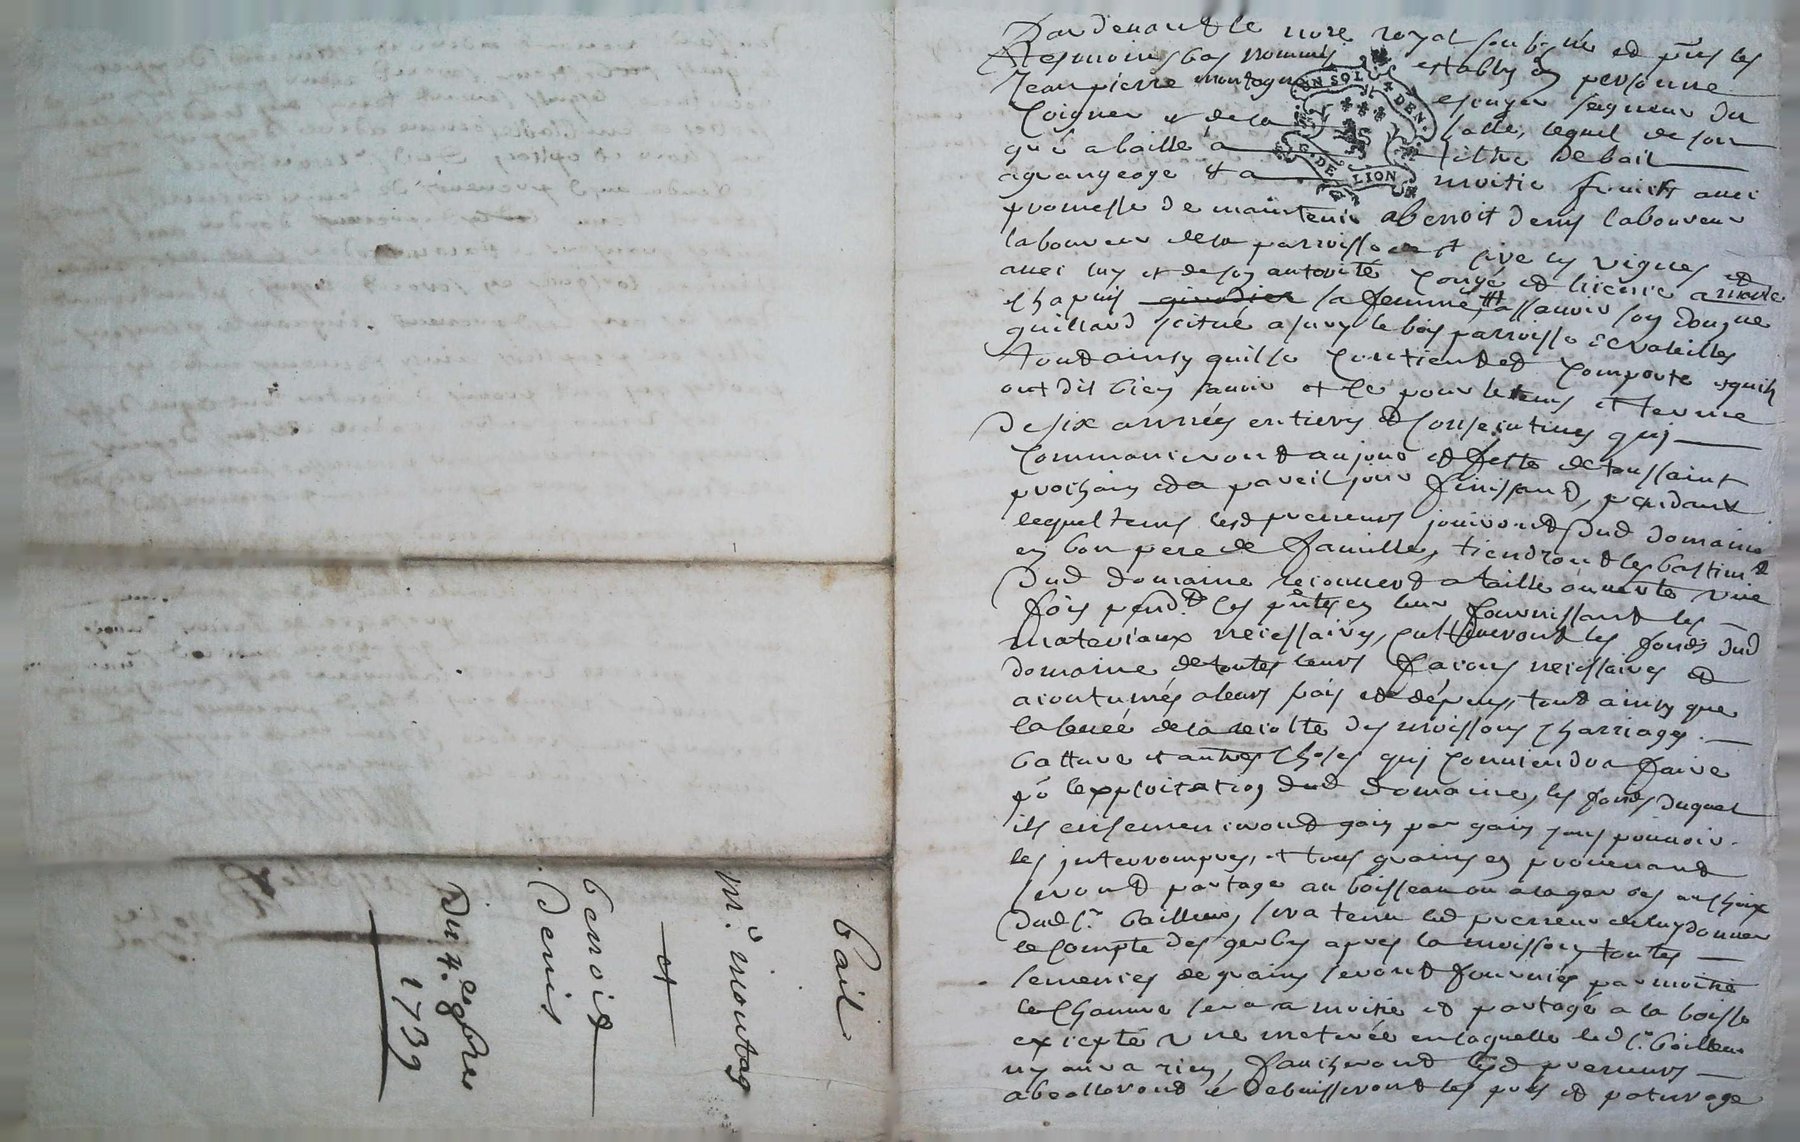 Pardevant le nore royal soubsigné et pnt les
Tesmoins bas nommés establi en personne
Jean pierre montagne escuyer seigneur du
Poigner et de la salle, lequel de son
gré a baillé a tiltre de bail
agrangeage et a moitié fruicts avec
promesse de maintenir a benoit denis laboureur
laboureur de la parroisse de st sire les vignes et
avec luy et de son autorité congé et licence a marie
chapuis sa femme assavoir son domaine
guilland scitué a sury le bois parroisse de valeilles
tout ainsy quil se contient et comporte et quils
ont dit bien scavoir et ce pour le tems et terme
de six années entieres et consecutives qui
commanceront au jour et feste de toussaint
prochain et a pareil jour finissant, pendant
lequel tems lesd preneurs jouiront dud domaine
en bon pere de famille, tiendront les bastimt
dud domaine recouvert a taille ouverte une
fois pendt ces pntes en leur fournissant les
materiaux necessaires, cultiveront les fonds dud
domaine de toutes leurs facons necessaires et
acoutumés a leurs frais et depens, tout ainsy que
la levée de la recolte des moissons charriages
batture et autres choses qui conviendra faire
po lexploitation dud domaine, les fonds duquel
ils ensemenceront gain par gain sans pouvoir
les interrompre, et tous grains en provenant
seront partagé au boisseau ou a la ger
dud sr bailleur, sera tenu led preneur de luy donner
le compte des gerbes apres la moisson toutes
semences de grains seront fournies par moitié
le chanvre sera a moitié et partagé a la boisse
excepté une meterée en laquelle led sr bailleur
ny aura rien, faucheront lesd preneurs
abealleront et debuissonront les prés et paturage
bail
mr. montag
et
benoit
Denis
Du 4e 9bres
1739
EN SOL
DEN.
G. DE
LION